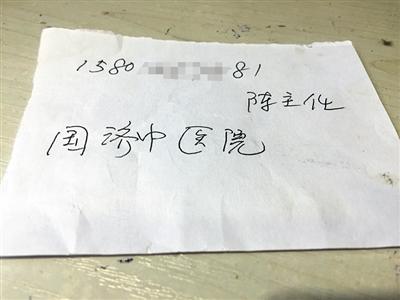 1580 81
陈主任
国济中医院